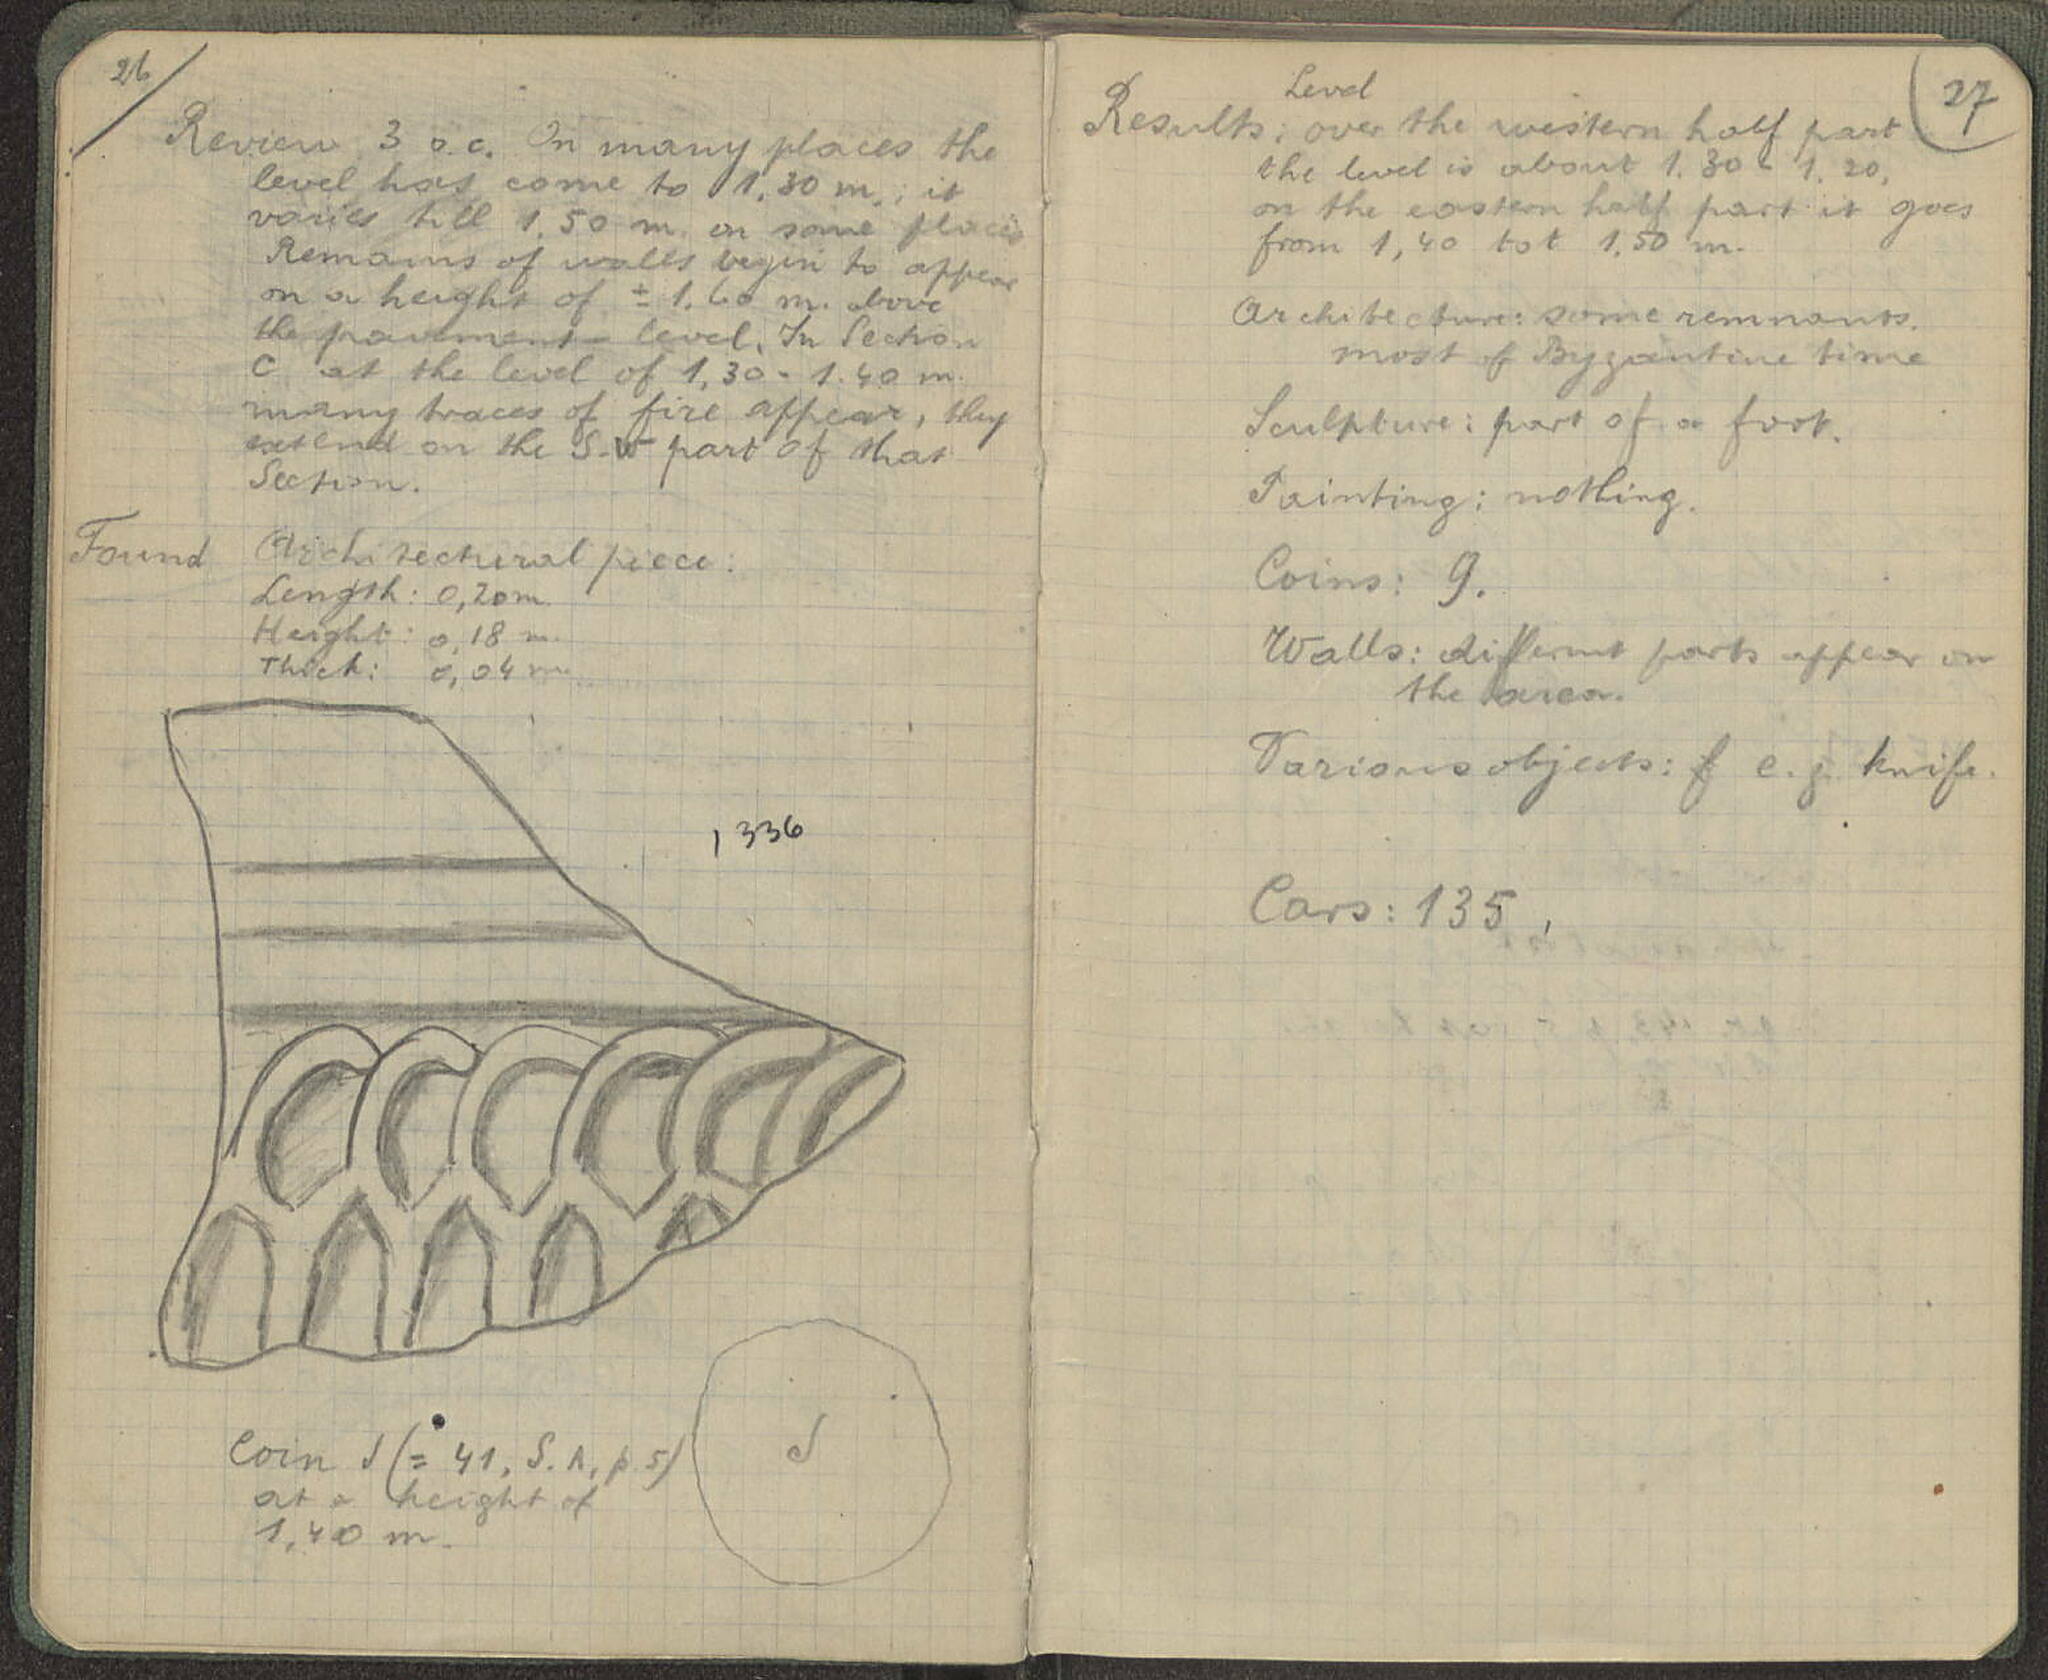 26
Review 3 o.c. On many places the
level has come to 1.30 m.; it
varies till 1.50 m. on some places
Remains of walls begin to appear
on a height of ± 1.60 m. above
the pavement-level. In Section
C at the level of 1,30 - 1.40 m.
many traces of fire appear, they
extend on the S.W part of that
Section.
Found Architectural piece:
Length: 0,20 m.
Height: 0,18 m.
Thick: 0,04 m.
1336
Coin J (= 41, S.A, p. 5)
at a height of
1,40 m.
J
27
Level
Results: over the western half part
the level is about 1.30 - 1.20,
on the eastern half part it goes
from 1,40 tot 1,50 m.
Architecture: some remnants.
most of Byzantine time
Sculpture: part of a foot.
Painting: nothing.
Coins: 9.
Walls: different parts appear on
the area.
Various objects: f e.g. knife.
Cars: 135,